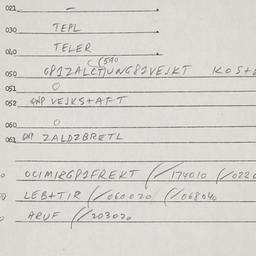 021 –
030 TEPL
040 TELER
(590
050 GPIZALCTJUNG82VEJKT KOST
051 O
052 GNP VEJKSTAFT
060 O
061 GNP ZALDZBRETL
OCIMIRGP2FREKT (/174010 (/022
LEB+TIR (/060020 (/068040
ARUF (/203020